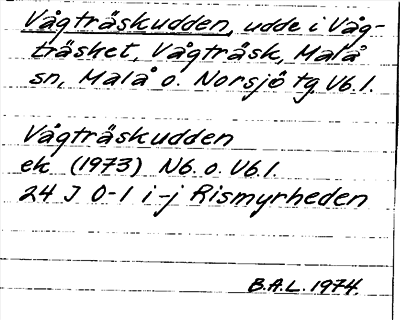 Vågträskudden, udde i Våg-
träsket, Vågträsk, Malå
sn, Malå o. Norsjö tg, Vb.l.
Vågträskudden
ek (1973) Nb. o. Vb.l.
24 J 0-1 i-j Rismyrheden
B.A.L. 1974.